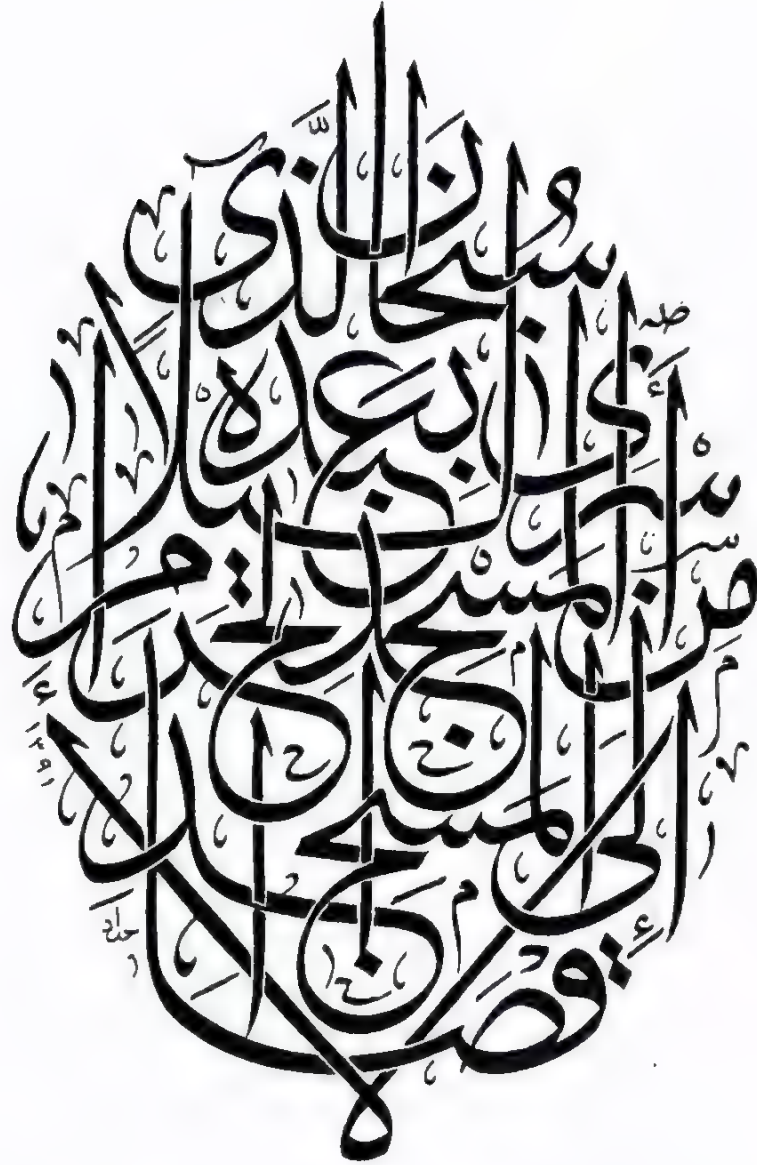 سُبْحَانَ الَّذِي
أَسْرَىٰ بِعَبْدِهِ لَيْلًا
مِنَ الْمَسْجِدِ الْحَرَامِ
إِلَى الْمَسْجِدِ الْأَقْصَى
١٣٩١